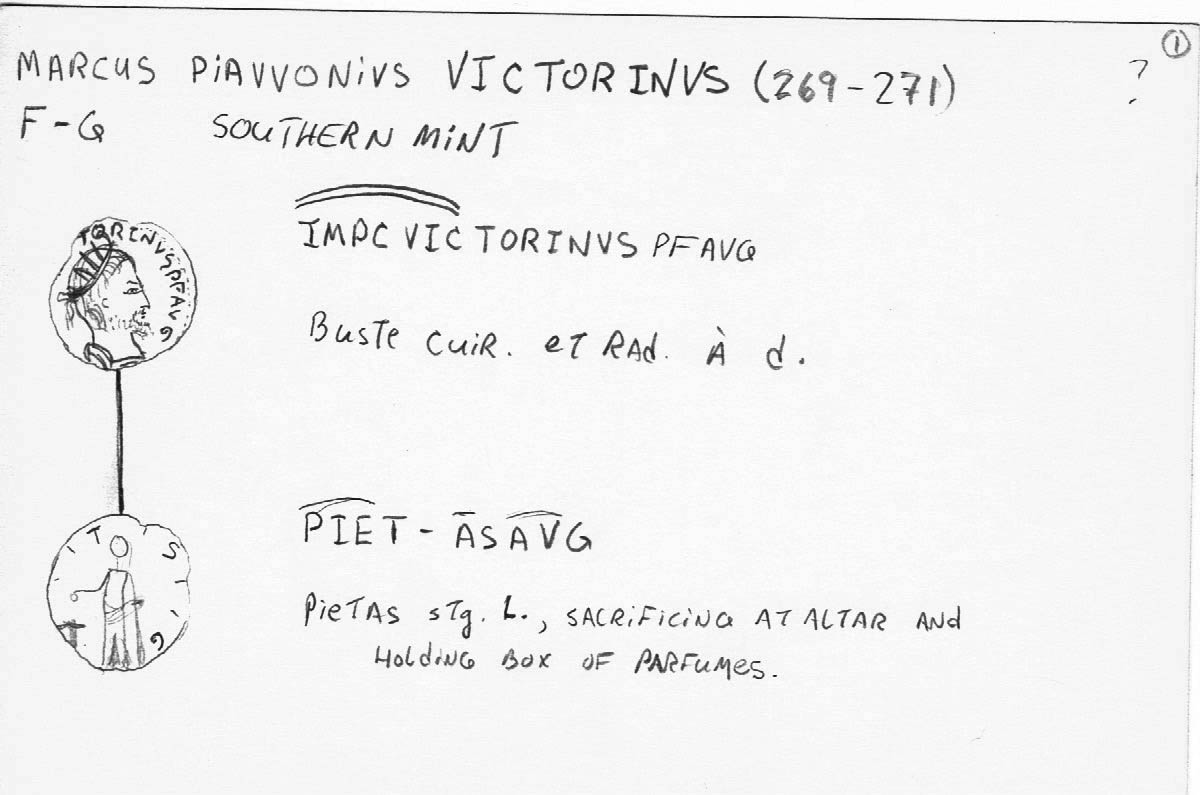 ①
MARCUS PiAVVONiVS VICTORINVS (269-271) ?
F-G SOUTHERN MiNT
IMPC VICTORINVS PFAVG
TORINVSPFAVG
BUSTe CUiR. eT RAd. À d.
PIET-ASAVG
T S G
PieTAS STg. L., SACRiFiCiNG AT ALTAR ANd
HoLdiNG BOX OF PARFUMeS.